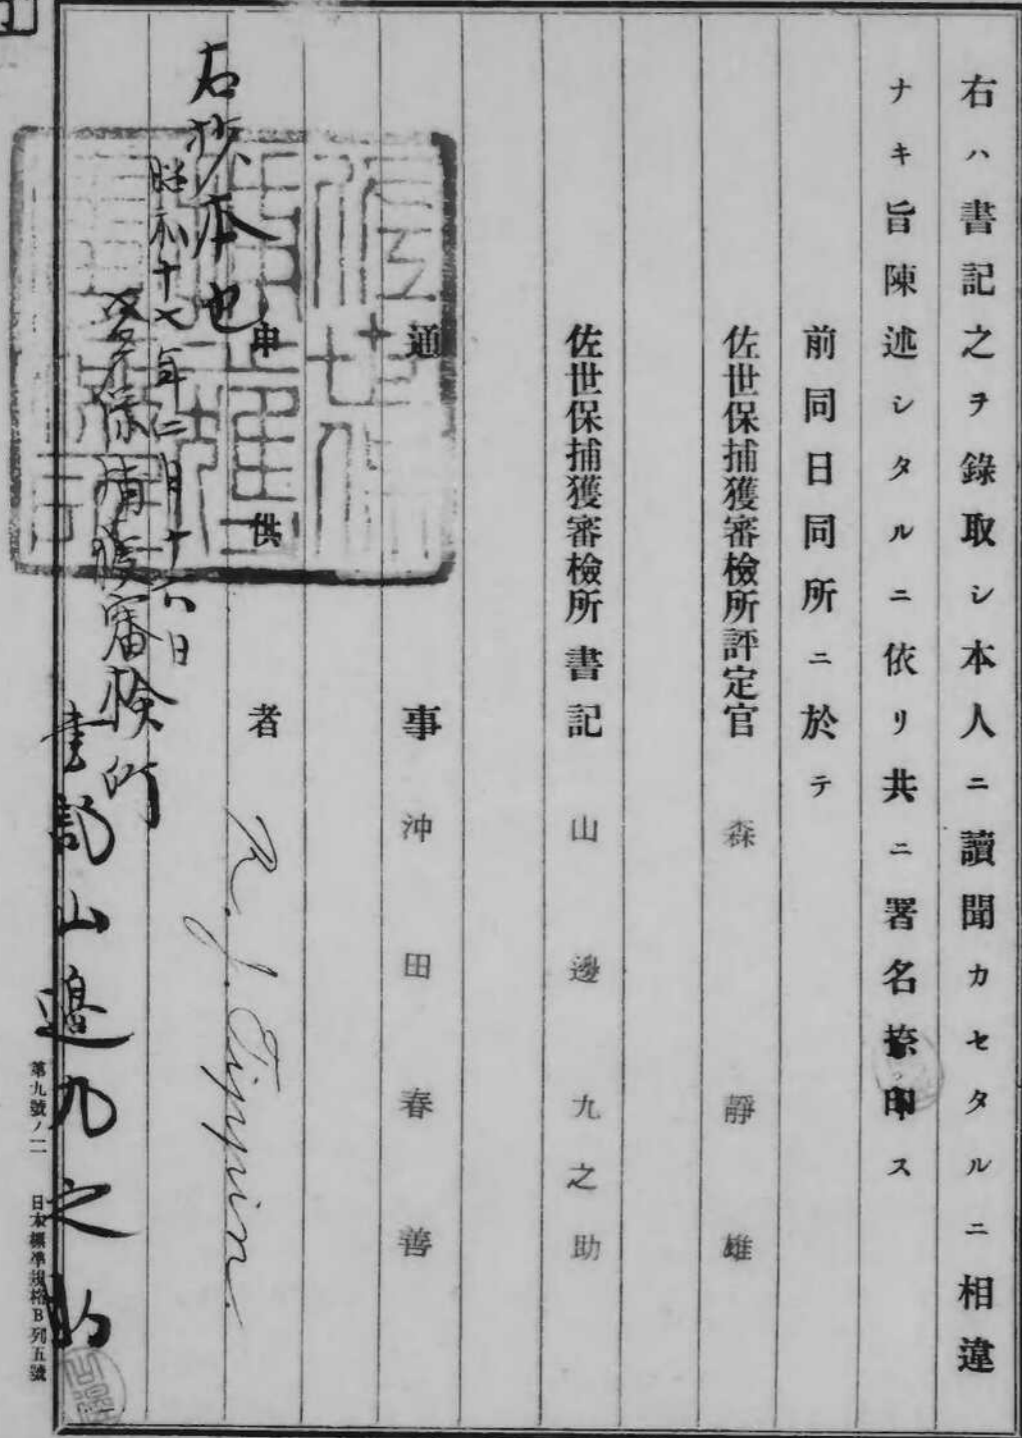 右ハ書記之ヲ錄取シ本人ニ讀聞カセタルニ相違
ナキ旨陳述シタルニ依リ共ニ署名捺印ス
前同日同所ニ於テ
佐世保捕獲審檢所評定官 森 靜雄
佐世保捕獲審檢所書記 山邊九之助
通事 沖田春善
申供者 R. J. Tippin.
右抄本也
昭和十七年二月十六日
佐世保捕獲審検所
書記山邉九之助
第九號ノ二 日本標準規格B列五號